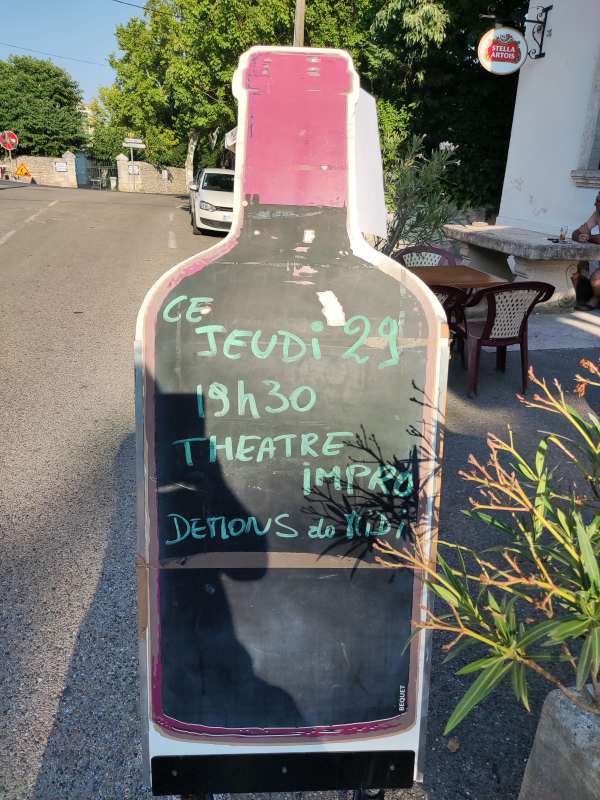 STELLA
ARTOIS
CE
JEUDi 29
19h30
THEATRE
iMPRO
DEMONS de MiDi
BEQUET